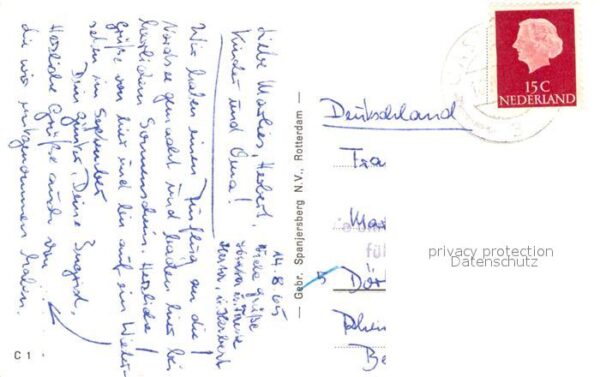 14.8.65
Liebe Marlies, Herbert,
Kinder und Oma!
Wir haben einen Ausflug an die
Nordsee gemacht und baden hier bei
herrlichem Sonnenschein. Herzliche
Grüße von hier und bin auf ein Wieder-
sehen im September
Dein Günter, Deine Ingrid.
Herzliche Grüße auch von
die wir mitgenommen haben.
Viele Grüße
Herbert
C 1
— Gebr. Spanjersberg N.V., Rotterdam —
15 C
NEDERLAND
Deutschland
Fra
Mar
für
5
Dör
Rhein
Be
privacy protection
Datenschutz